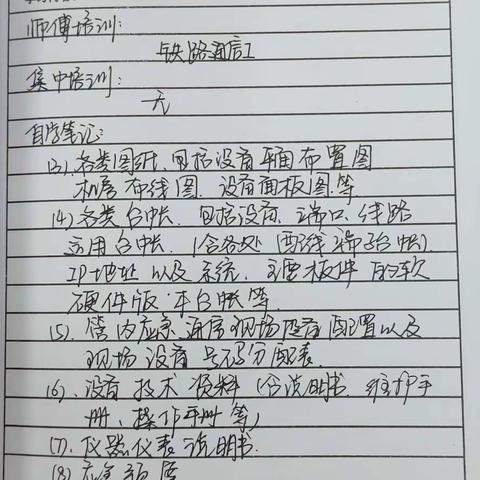 师傅培训:
铁路通信工
集中培训:
无
自学笔记:
(3)、各类图纸,包括设备平面布置图
机房布线图、设备面板图等
(4)各类台帐,包括设备、端口、线路
运用台帐,(含各处配线端子台帐).
IP地址以及系统、主要板件的软
硬件版本台帐等
(5)、管内应急通信现场设备配置以及
现场设备号码分配表.
(6)、设备技术资料(含说明书、维护手
册、操作手册等)
(7)、仪器仪表说明书.
(8)应急预案